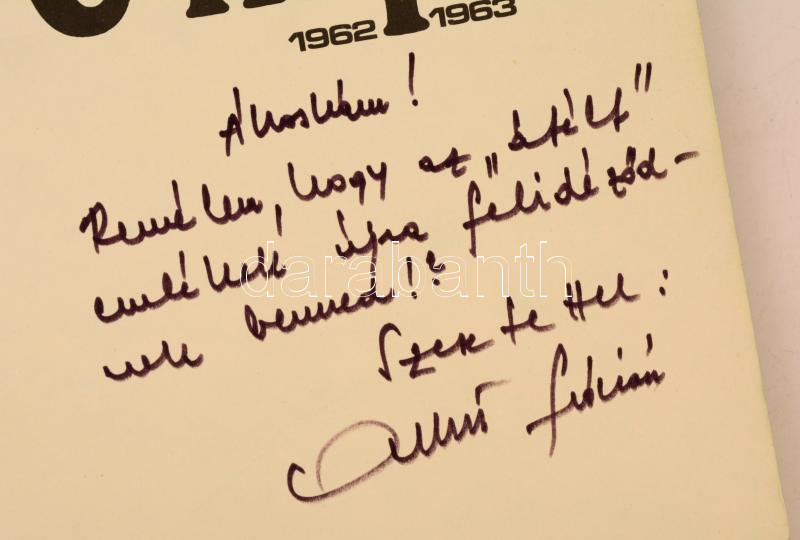 1962 1963
Ákoskám!
Remélem, hogy az „átélt"
emlékek újra felidéződ-
nek benned!?
Szeretettel:
darabanth